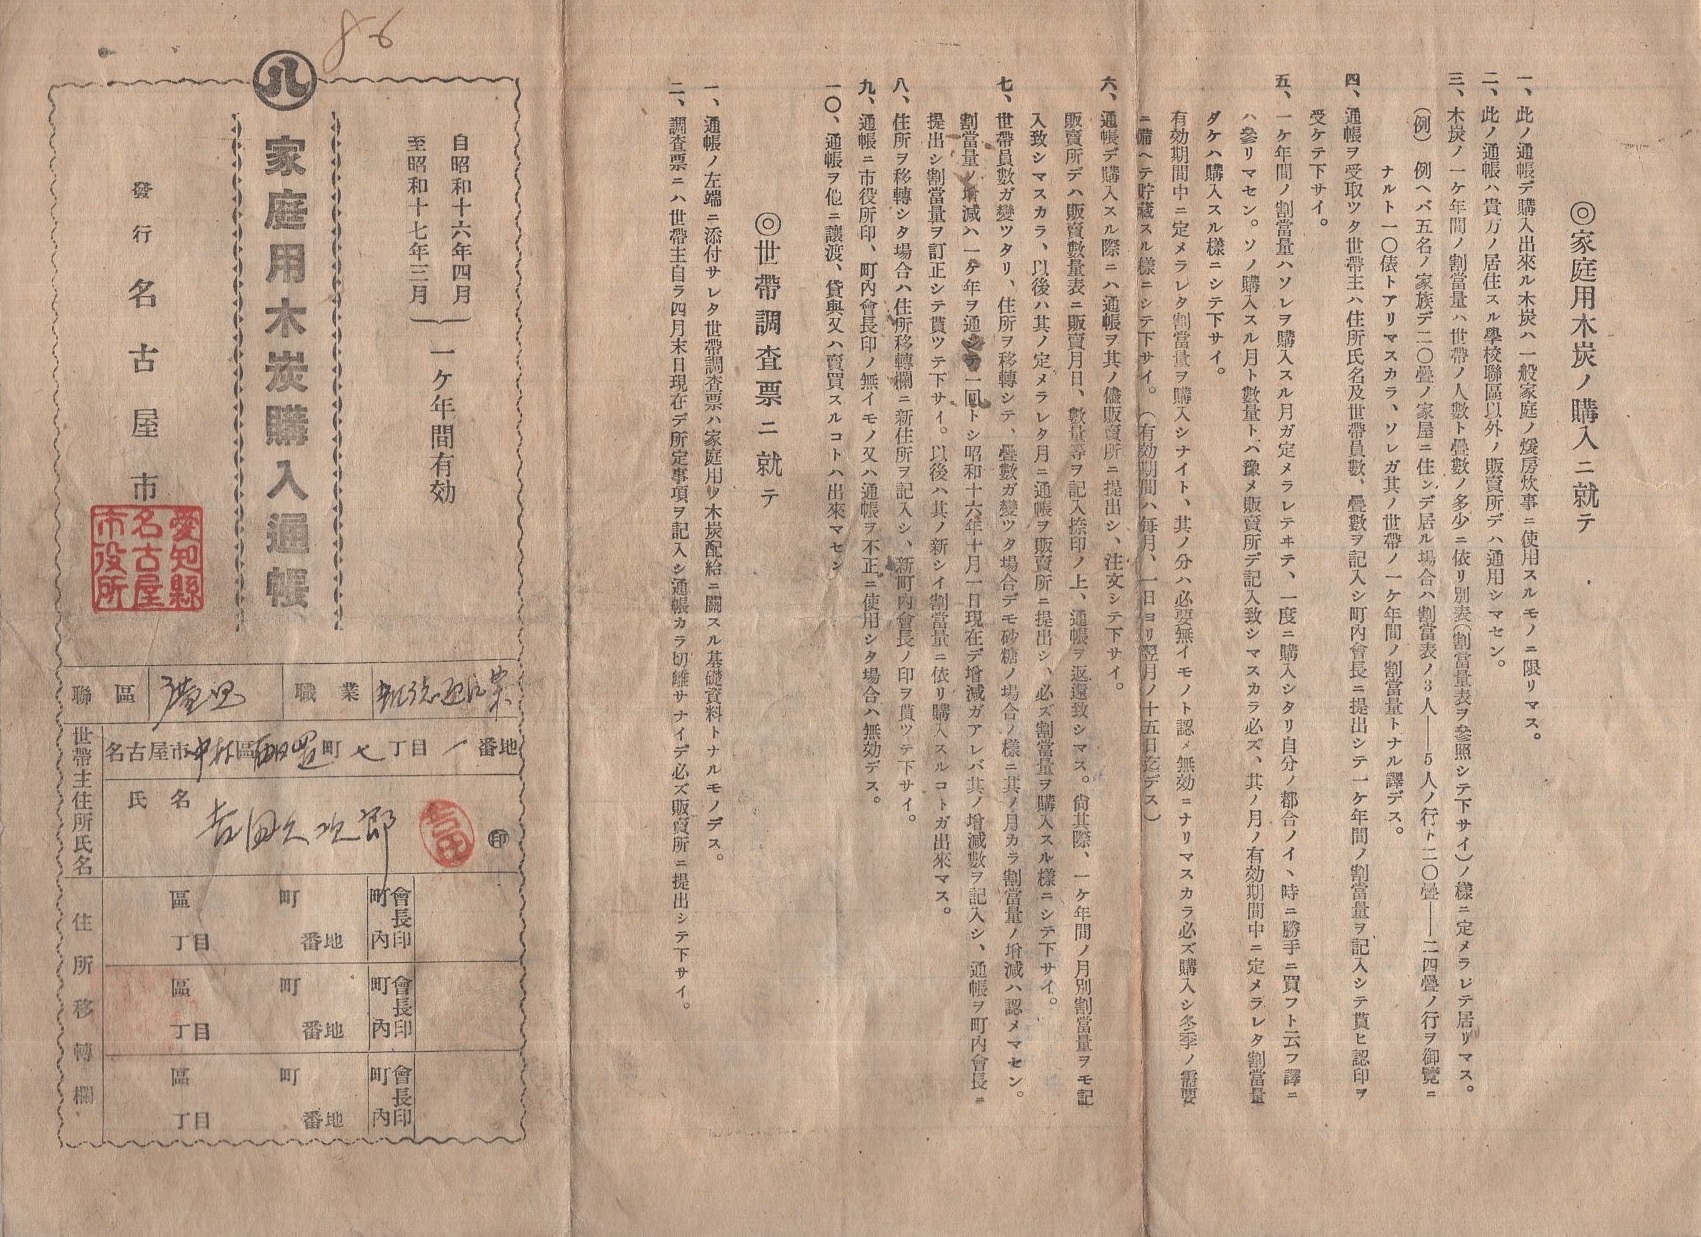 ◎家庭用木炭ノ購入ニ就テ
一、此ノ通帳デ購入出來ル木炭ハ一般家庭ノ煖房炊事ニ使用スルモノニ限リマス。
二、此ノ通帳ハ貴方ノ居住スル學校聯區以外ノ販賣所デハ通用シマセン。
三、木炭ノ一ケ年間ノ割當量ハ世帶ノ人數ト疊數ノ多少ニ依リ別表(割當量表ヲ參照シテ下サイ)ノ樣ニ定メラレテ居リマス。
(例) 例ヘバ五名ノ家族デ二〇疊ノ家屋ニ住ンデ居ル場合ハ割當表ノ3人——5人ノ行ト二〇疊——二四疊ノ行ヲ御覽ニ
ナルト一〇俵トアリマスカラ、ソレガ其ノ世帶ノ一ケ年間ノ割當量トナル譯デス。
四、通帳ヲ受取ツタ世帶主ハ住所氏名及世帶員數、疊數ヲ記入シ町內會長ニ提出シテ一ケ年間ノ割當量ヲ記入シテ貰ヒ認印ヲ
受ケテ下サイ。
五、一ケ年間ノ割當量ハソレヲ購入スル月ガ定メラレテヰテ、一度ニ購入シタリ自分ノ都合ノイヽ時ニ勝手ニ買フト云フ譯ニ
ハ參リマセン。ソノ購入スル月ト數量トハ豫メ販賣所デ記入致シマスカラ必ズ、其ノ月ノ有効期間中ニ定メラレタ割當量
ダケハ購入スル樣ニシテ下サイ。
有効期間中ニ定メラレタ割當量ヲ購入シナイト、其ノ分ハ必要無イモノト認メ無効ニナリマスカラ必ズ購入シ冬季ノ需要
ニ備ヘテ貯藏スル樣ニシテ下サイ。(有効期間ハ每月、一日ヨリ翌月ノ十五日迄デス)
六、通帳デ購入スル際ニハ通帳ヲ其ノ儘販賣所ニ提出シ、注文シテ下サイ。
販賣所デハ販賣數量表ニ販賣月日、數量等ヲ記入捺印ノ上、通帳ヲ返還致シマス。尙其際、一ケ年間ノ月別割當量ヲモ記
入致シマスカラ、以後ハ其ノ定メラレタ月ニ通帳ヲ販賣所ニ提出シ、必ズ割當量ヲ購入スル樣ニシテ下サイ。
七、世帶員數ガ變ツタリ、住所ヲ移轉シテ、疊數ガ變ツタ場合デモ砂糖ノ場合ノ樣ニ其ノ月カラ割當量ノ增減ハ認メマセン。
割當量ノ增減ハ一ケ年ヲ通ジテ一回トシ昭和十六年十月一日現在デ增減ガアレバ其ノ增減數ヲ記入シ、通帳ヲ町內會長ニ
提出シ割當量ヲ訂正シテ貰ツテ下サイ。以後ハ其ノ新シイ割當量ニ依リ購入スルコトガ出來マス。
八、住所ヲ移轉シタ場合ハ住所移轉欄ニ新住所ヲ記入シ、新町內會長ノ印ヲ貰ツテ下サイ。
九、通帳ニ市役所印、町內會長印ノ無イモノ又ハ通帳ヲ不正ニ使用シタ場合ハ無効デス。
一〇、通帳ヲ他ニ讓渡、貸與又ハ賣買スルコトハ出來マセン
◎世帶調査票ニ就テ
一、通帳ノ左端ニ添付サレタ世帶調査票ハ家庭用ノ木炭配給ニ關スル基礎資料トナルモノデス。
二、調査票ニハ世帶主自ラ四月末日現在デ所定事項ヲ記入シ通帳カラ切離サナイデ必ズ販賣所ニ提出シテ下サイ。
86
自昭和十六年四月
至昭和十七年三月
一ケ年間有効
八
家庭用木炭購入通帳
發行 名古屋市
愛知縣
名古屋
市役所
聯區
職業
世帶主住所氏名
名古屋市中村區町七丁目一番地
氏名 吉田久次郎 吉田 印
住所移轉欄
區 町
丁目 番地
町內會長印
區 町
丁目 番地
町內會長印
區 町
丁目 番地
町內會長印